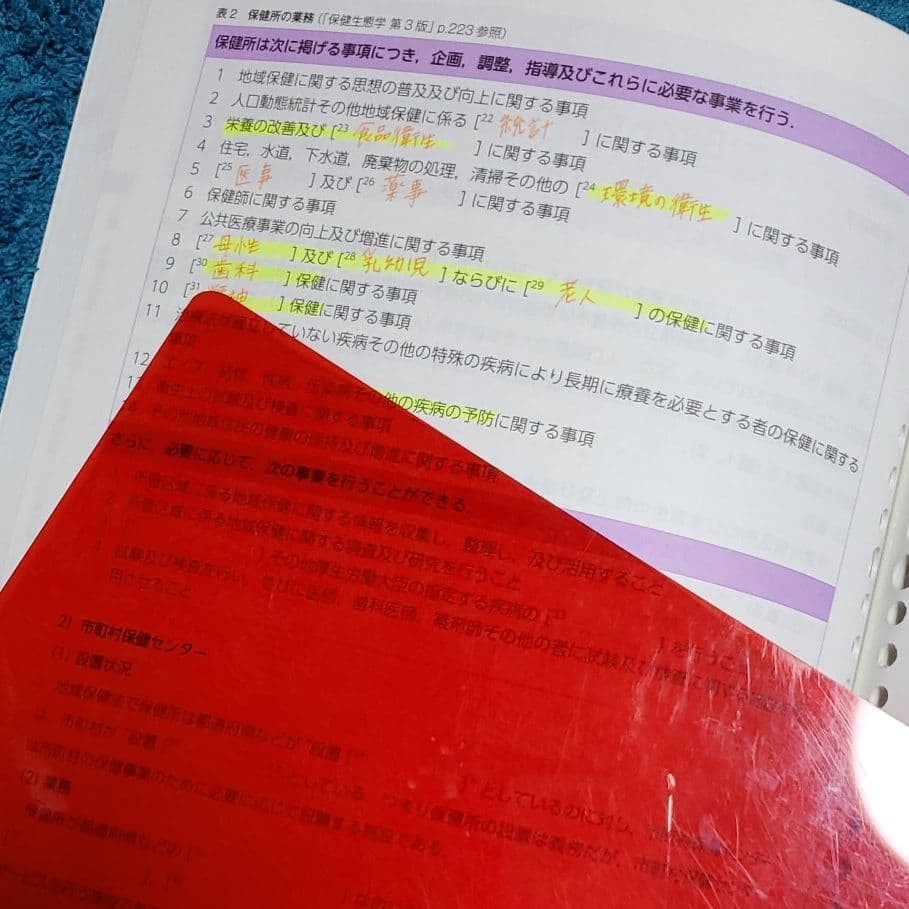 表2 保健所の業務(「保健生態学 第3版」p.223参照)
保健所は次に掲げる事項につき,企画,調整,指導及びこれらに必要な事業を行う.
1 地域保健に関する思想の普及及び向上に関する事項
2 人口動態統計その他地域保健に係る [22 統計 ] に関する事項
3 栄養の改善及び [23 食品衛生 ] に関する事項
4 住宅,水道,下水道,廃棄物の処理,清掃その他の [24 環境の衛生 ] に関する事項
5 [25 医事 ] 及び [26 薬事 ] に関する事項
6 保健師に関する事項
7 公共医療事業の向上及び増進に関する事項
8 [27 母性 ] 及び [28 乳幼児 ] ならびに [29 老人 ] の保健に関する事項
9 [30 歯科 ] 保健に関する事項
10 [31 精神 ] 保健に関する事項
11 治療法が確立していない疾病その他の特殊の疾病により長期に療養を必要とする者の保健に関する
事項
12 エイズ,結核,性病,伝染病その他の疾病の予防に関する事項
13 衛生上の試験及び検査に関する事項
14 その他地域住民の健康の保持及び増進に関する事項
さらに,必要に応じて,次の事業を行うことができる.
1 所管区域に係る地域保健に関する情報を収集し,整理し,及び活用すること
2 所管区域に係る地域保健に関する調査及び研究を行うこと
] その他厚生労働大臣の指定する疾病の [33 ] を行うこ
4 試験及び検査を行い,並びに医師,歯科医師,薬剤師その他の者に試験及び検査に関する
用させること
2) 市町村保健センター
(1) 設置状況
地域保健法で保健所は都道府県などが“設置 [ ]”としているのに対し,市町村保健センター
は,市町村が“設置 [ ]”としている.つまり保健所の設置は義務だが,市町村保健センター
は市町村の保健事業のために必要に応じて設置する施設である.
(2) 業務
保健所が都道府県などの [
サービスを行う